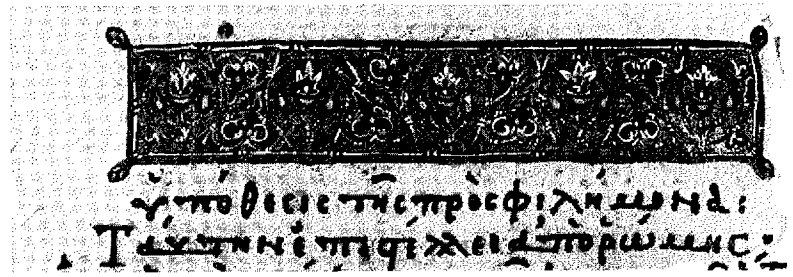 ὑπόθεσις τῆς πρὸς φιλήμονα:
Ταύτην ἐπιστέλλει ἀπὸ ῥώμης·